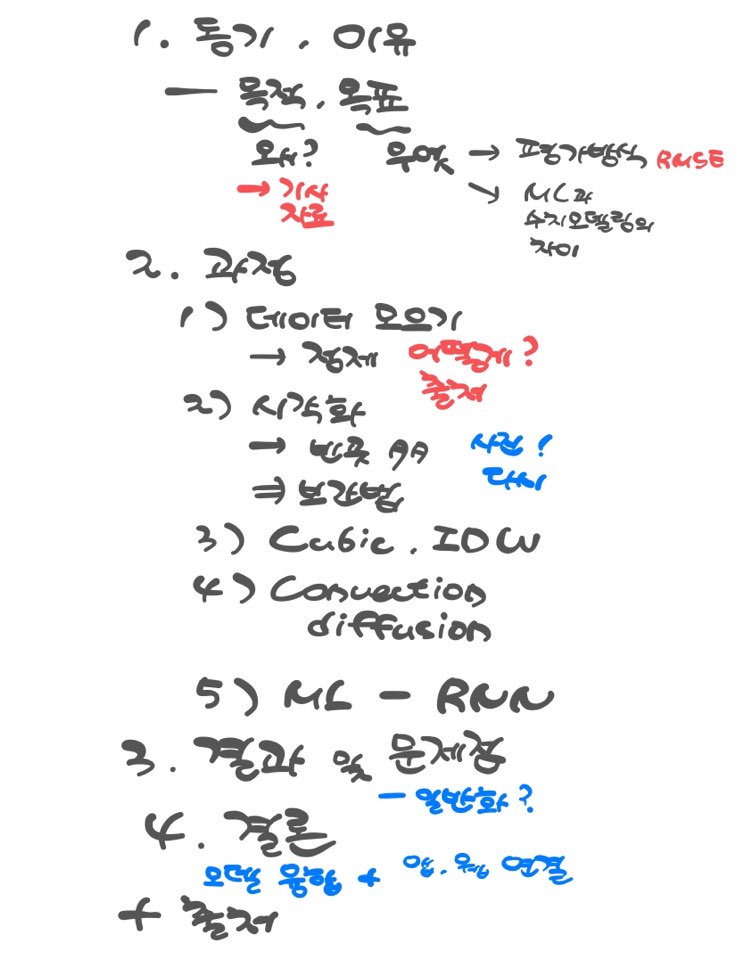 1. 동기, 이유
— 목적, 목표
왜? 무엇 → 평가방식 RMSE
→ 기사 자료
↘ ML과 수치모델링의 차이
2. 과정
1) 데이터 모으기
→ 정제 어떻게?
출처
2) 시각화
→ 빈곳 ㅠㅠ 사진!
⇒ 보간법
3) Cubic, IDW
4) Convection
diffusion
5) ML - RNN
3. 결과 및 문제점
- 일반화?
4. 결론
모델 융합 + 앱, 웹 연결
+ 출처